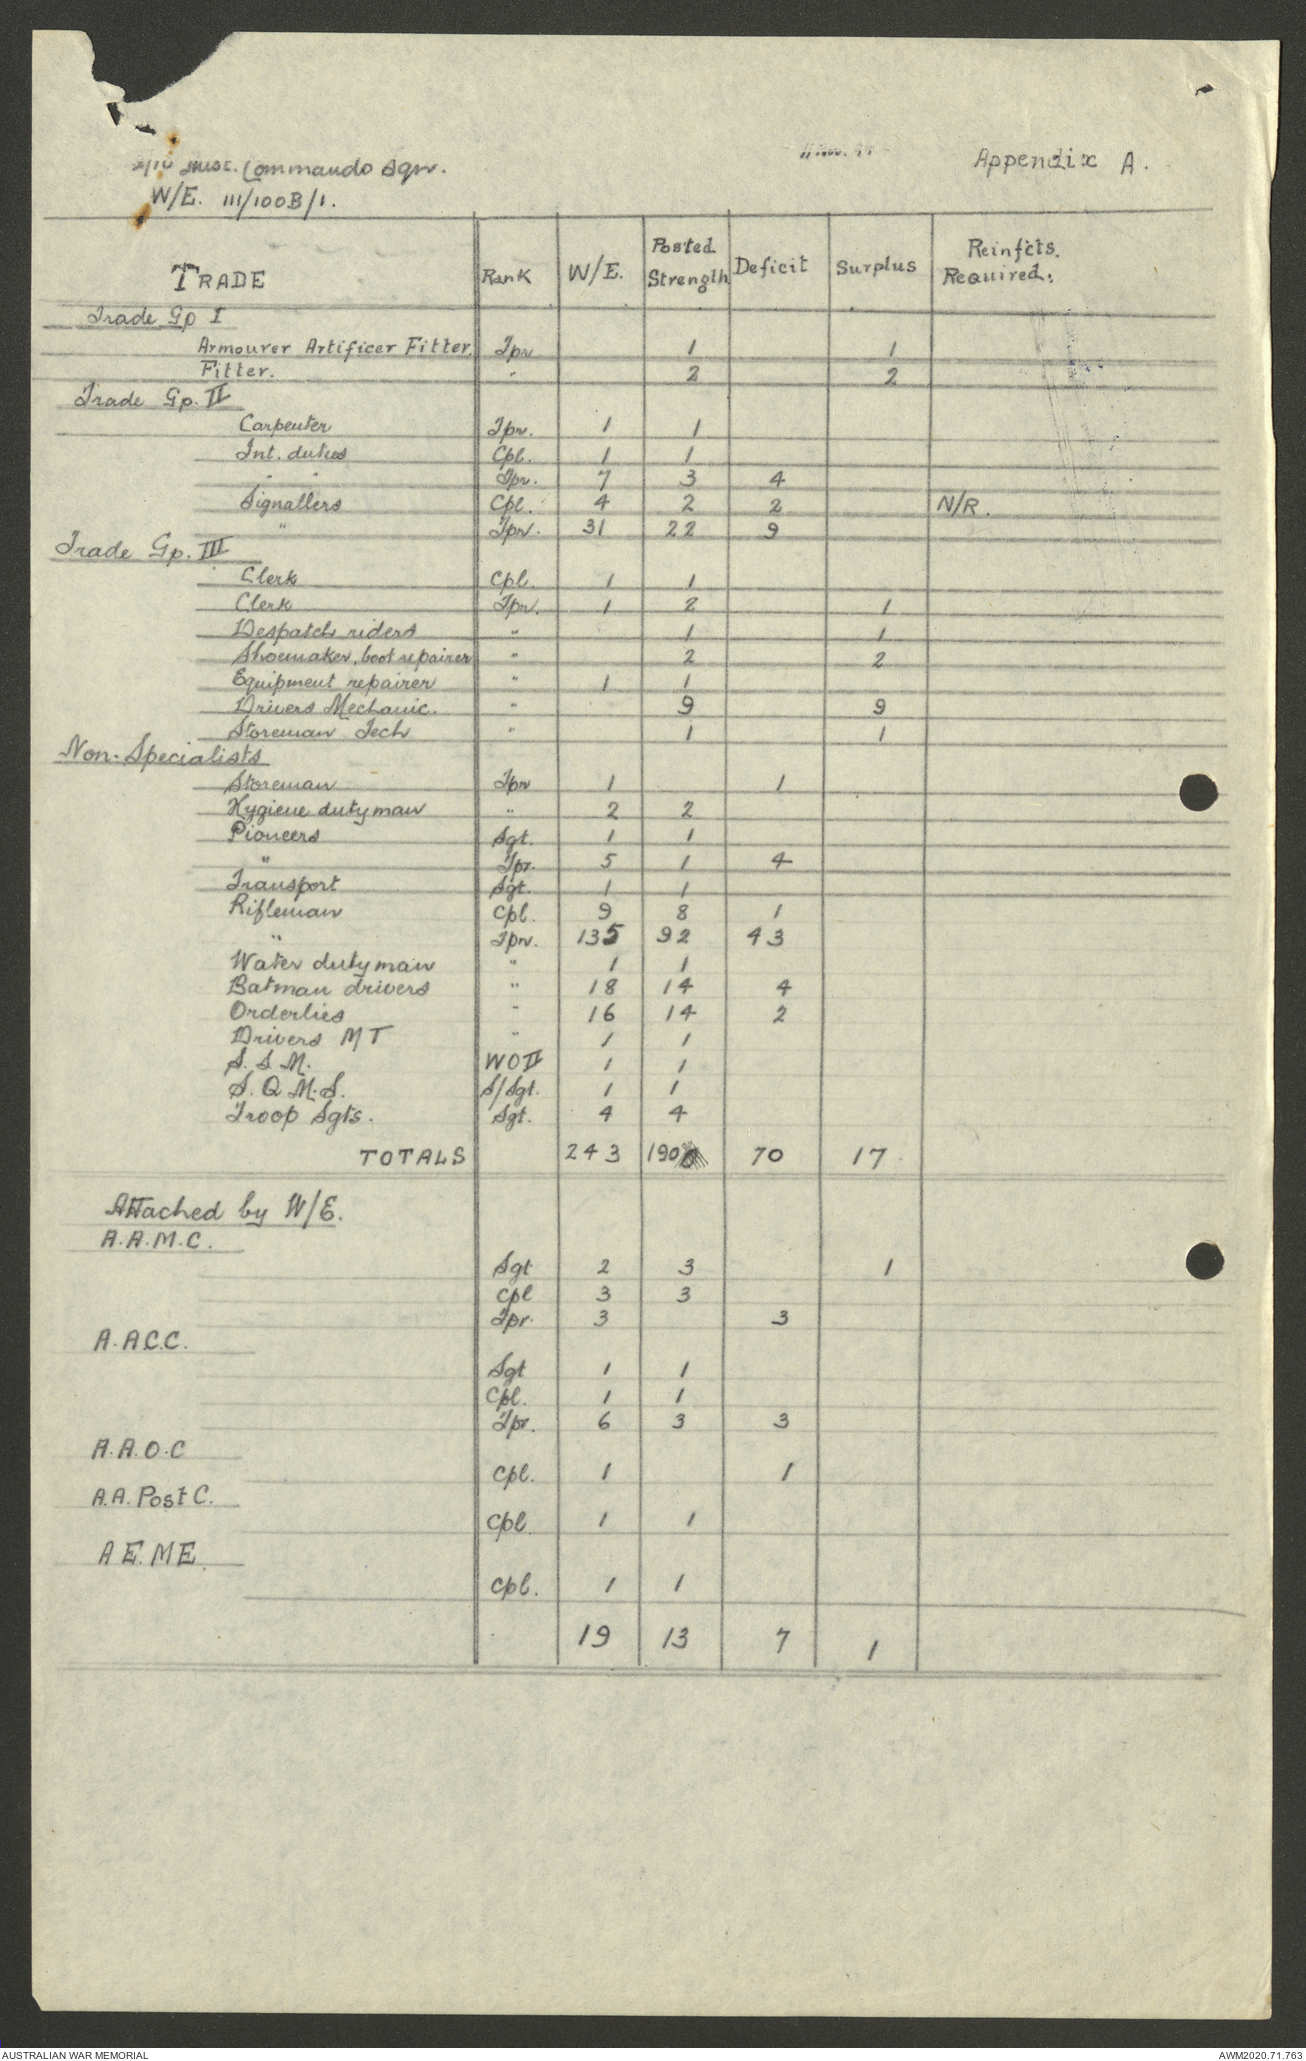 Aust. Commando Sqn.
Appendix A.
W/E. III/100B/1.
TRADE Rank W/E. Posted Strength Deficit Surplus Reinfcts. Required.
Trade Gp I
Armourer Artificer Fitter. Tpr 1 1
Fitter. " 2 2
Trade Gp. II
Carpenter Tpr. 1 1
Int. duties Cpl. 1 1
" " Tpr. 7 3 4
Signallers Cpl. 4 2 2 N/R.
" Tpr. 31 22 9
Trade Gp. III
Clerk Cpl. 1 1
Clerk Tpr. 1 2 1
Despatch riders " 1 1
Shoemaker, boot repairer " 2 2
Equipment repairer " 1 1
Drivers Mechanic. " 9 9
Storeman Tech " 1 1
Non-Specialists
Storeman Tpr 1 1
Hygiene dutyman " 2 2
Pioneers Sgt. 1 1
" Tpr. 5 1 4
Transport Sgt. 1 1
Rifleman Cpl. 9 8 1
" Tpr. 135 92 43
Water dutyman " 1 1
Batman drivers " 18 14 4
Orderlies " 16 14 2
Drivers M T " 1 1
S. S. M. WO II 1 1
S. Q. M. S. S/Sgt. 1 1
Troop Sgts. Sgt. 4 4
TOTALS 243 190 70 17
Attached by W/E.
A.A.M.C.
Sgt 2 3 1
Cpl 3 3
Tpr. 3 3
A.A.C.C.
Sgt 1 1
Cpl. 1 1
Tpr. 6 3 3
A.A.O.C
Cpl. 1 1
A.A. Post C.
Cpl 1 1
A E. M E.
Cpl. 1 1
19 13 7 1
AUSTRALIAN WAR MEMORIAL
AWM2020.71.763